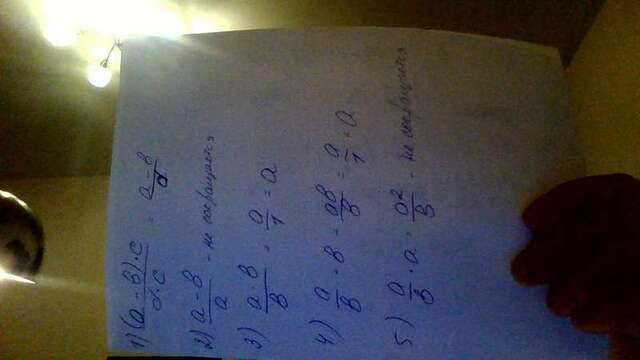 1) (a - в)·c / d·c = a - в / d
2) a - в / a - не сокращается
3) a·в / в = a / 1 = a
4) a / в · в = aв / в = a / 1 = a
5) a / в · a = a² / в - не сокращается